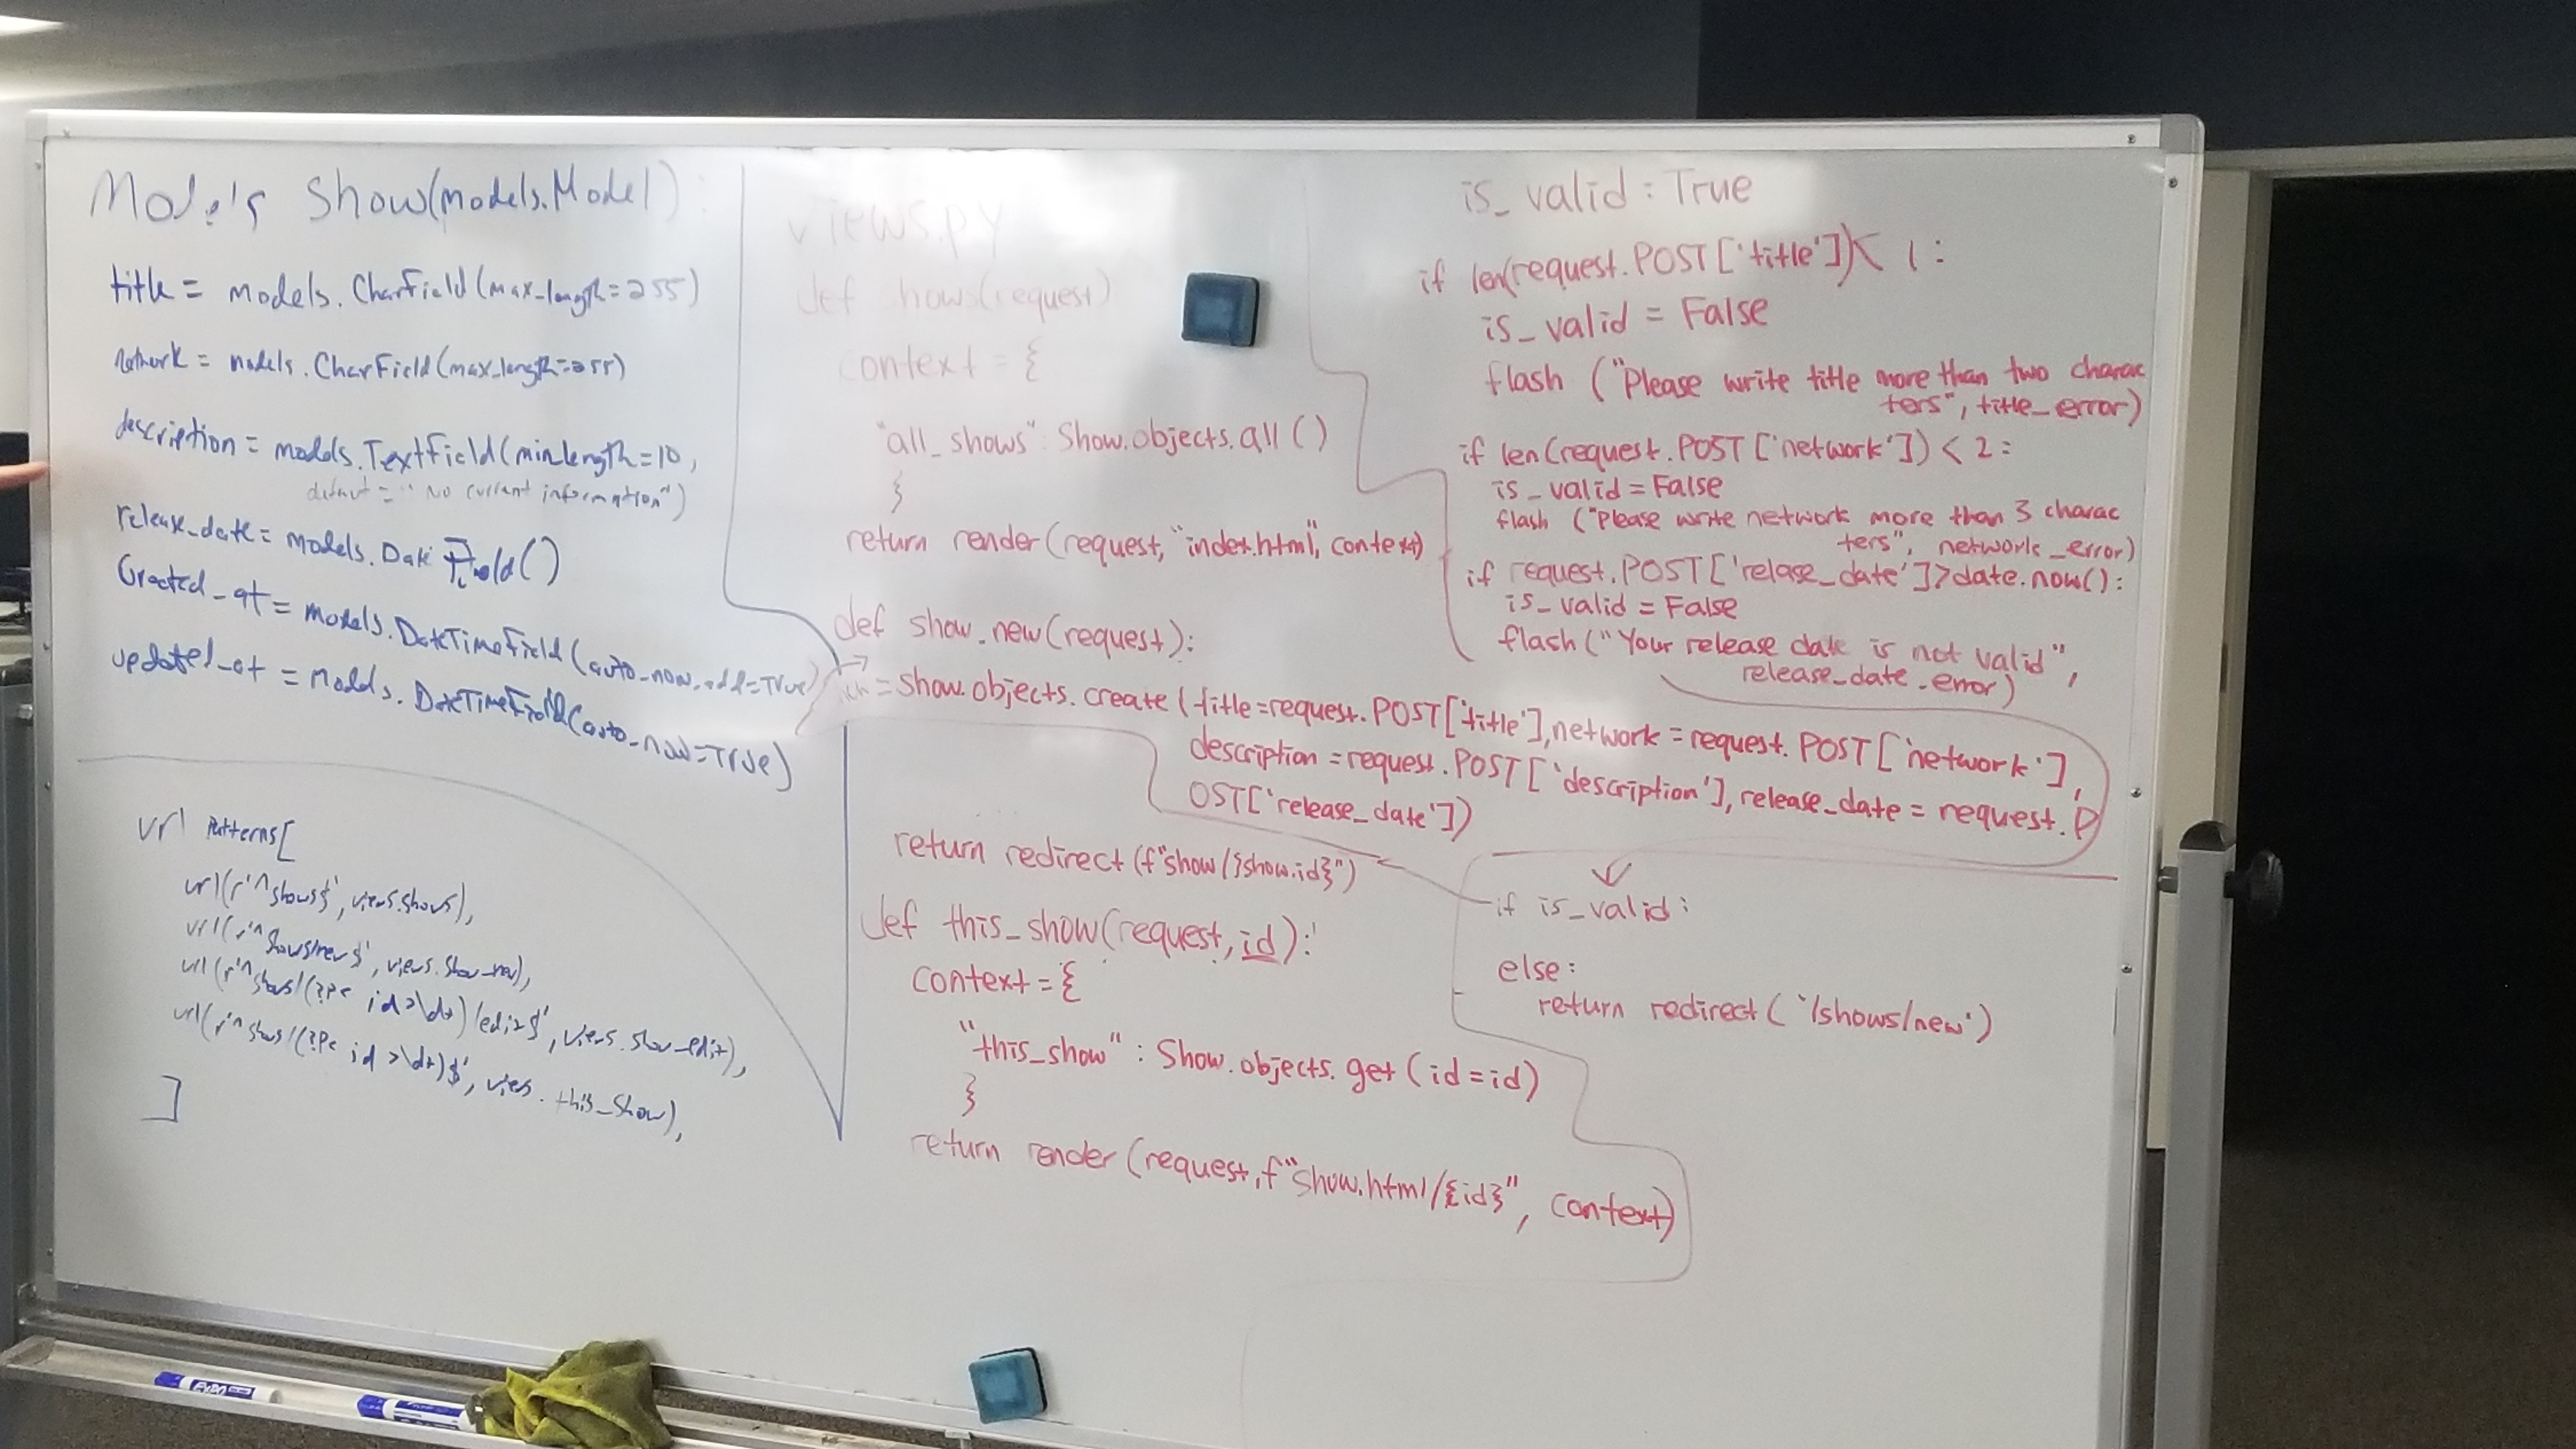 Models Show(models.Model):
title = models.CharField(max_length=255)
network = models.CharField(max_length=255)
description = models.TextField(min_length=10,
default = "No current information")
release_date = models.DateField()
Created_at = models.DateTimeField(auto_now_add=True)
updated_at = models.DateTimeField(auto_now=True)
url Patterns[
url(r'^shows$', views.shows),
url(r'^shows/new$', views.show_new),
url(r'^shows/(?P< id >\d+)/edit$', views.show_edit),
url(r'^shows/(?P< id >\d+)$', views.this_show),
]
views.py
def shows(request)
context = {
"all_shows": Show.objects.all()
}
return render(request, "index.html", context)
def show_new(request):
= Show.objects.create(title=request.POST['title'], network = request.POST['network'],
description = request.POST['description'], release_date = request.P
OST['release_date'])
return redirect(f"show/}show.id}")
def this_show(request, id):
context = {
"this_show" : Show.objects.get(id=id)
}
return render(request, f"show.html/{id}", context)
is_valid : True
if len(request.POST['title']) < 1:
is_valid = False
flash ("Please write title more than two charac
ters", title_error)
if len(request.POST['network']) < 2:
is_valid = False
flash ("Please write network more than 3 charac
ters", network_error)
if request.POST['relase_date']>date.now():
is_valid = False
flash("Your release date is not valid",
release_date_error)
if is_valid:
else:
return redirect('/shows/new')
EXPO